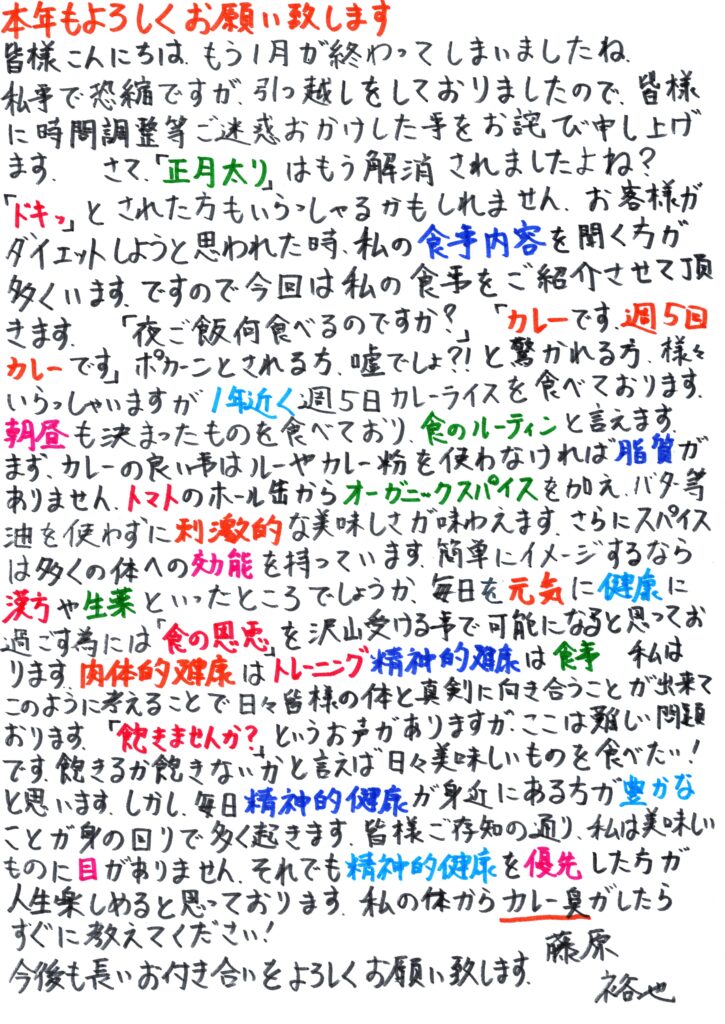 本年もよろしくお願い致します
皆様こんにちは、もう1月が終わってしまいましたね、
私事で恐縮ですが、引っ越しをしておりましたので、皆様
に時間調整等ご迷惑おかけした事をお詫び申し上げ
ます、 さて、「正月太り」はもう解消されましたよね?
「ドキッ」とされた方もいらっしゃるかもしれません、お客様が
ダイエットしようと思われた時、私の食事内容を聞く方が
多くいます、ですので今回は私の食事をご紹介させて頂
きます、 「夜ご飯何食べるのですか?」 「カレーです、週5日
カレーです」ポカーンとされる方、嘘でしょ?!と驚かれる方、様々
いらっしゃいますが1年近く週5日カレーライスを食べております、
朝昼も決まったものを食べており、食のルーティンと言えます、
ます、カレーの良い事はルーやカレー粉を使わなければ脂質が
ありません、トマトのホール缶からオーガニックスパイスを加え、バター等
油を使わずに刺激的な美味しさが味わえます、さらにスパイス
は多くの体への効能を持っています、簡単にイメージするなら
漢方や生薬といったところでしょうか、毎日を元気に健康に
過ごす為には「食の恩恵」を沢山受ける事で可能になると思ってお
ります、肉体的健康はトレーニング精神的健康は食事 私は
このように考えることで日々皆様の体と真剣に向き合うことが出来て
おります、「飽きませんか?」というお声がありますが、ここは難しい問題
です、飽きるか飽きないかと言えば日々美味しいものを食べたい!
と思います、しかし、毎日精神的健康が身近にある方が豊かな
ことが身の回りで多く起きます 皆様ご存知の通り、私は美味しい
ものに目がありません、それでも精神的健康を優先した方が
人生楽しめると思っております、私の体からカレー臭がしたら
すぐに教えてください!
今後も長いお付き合いをよろしくお願い致します、
藤原
裕也